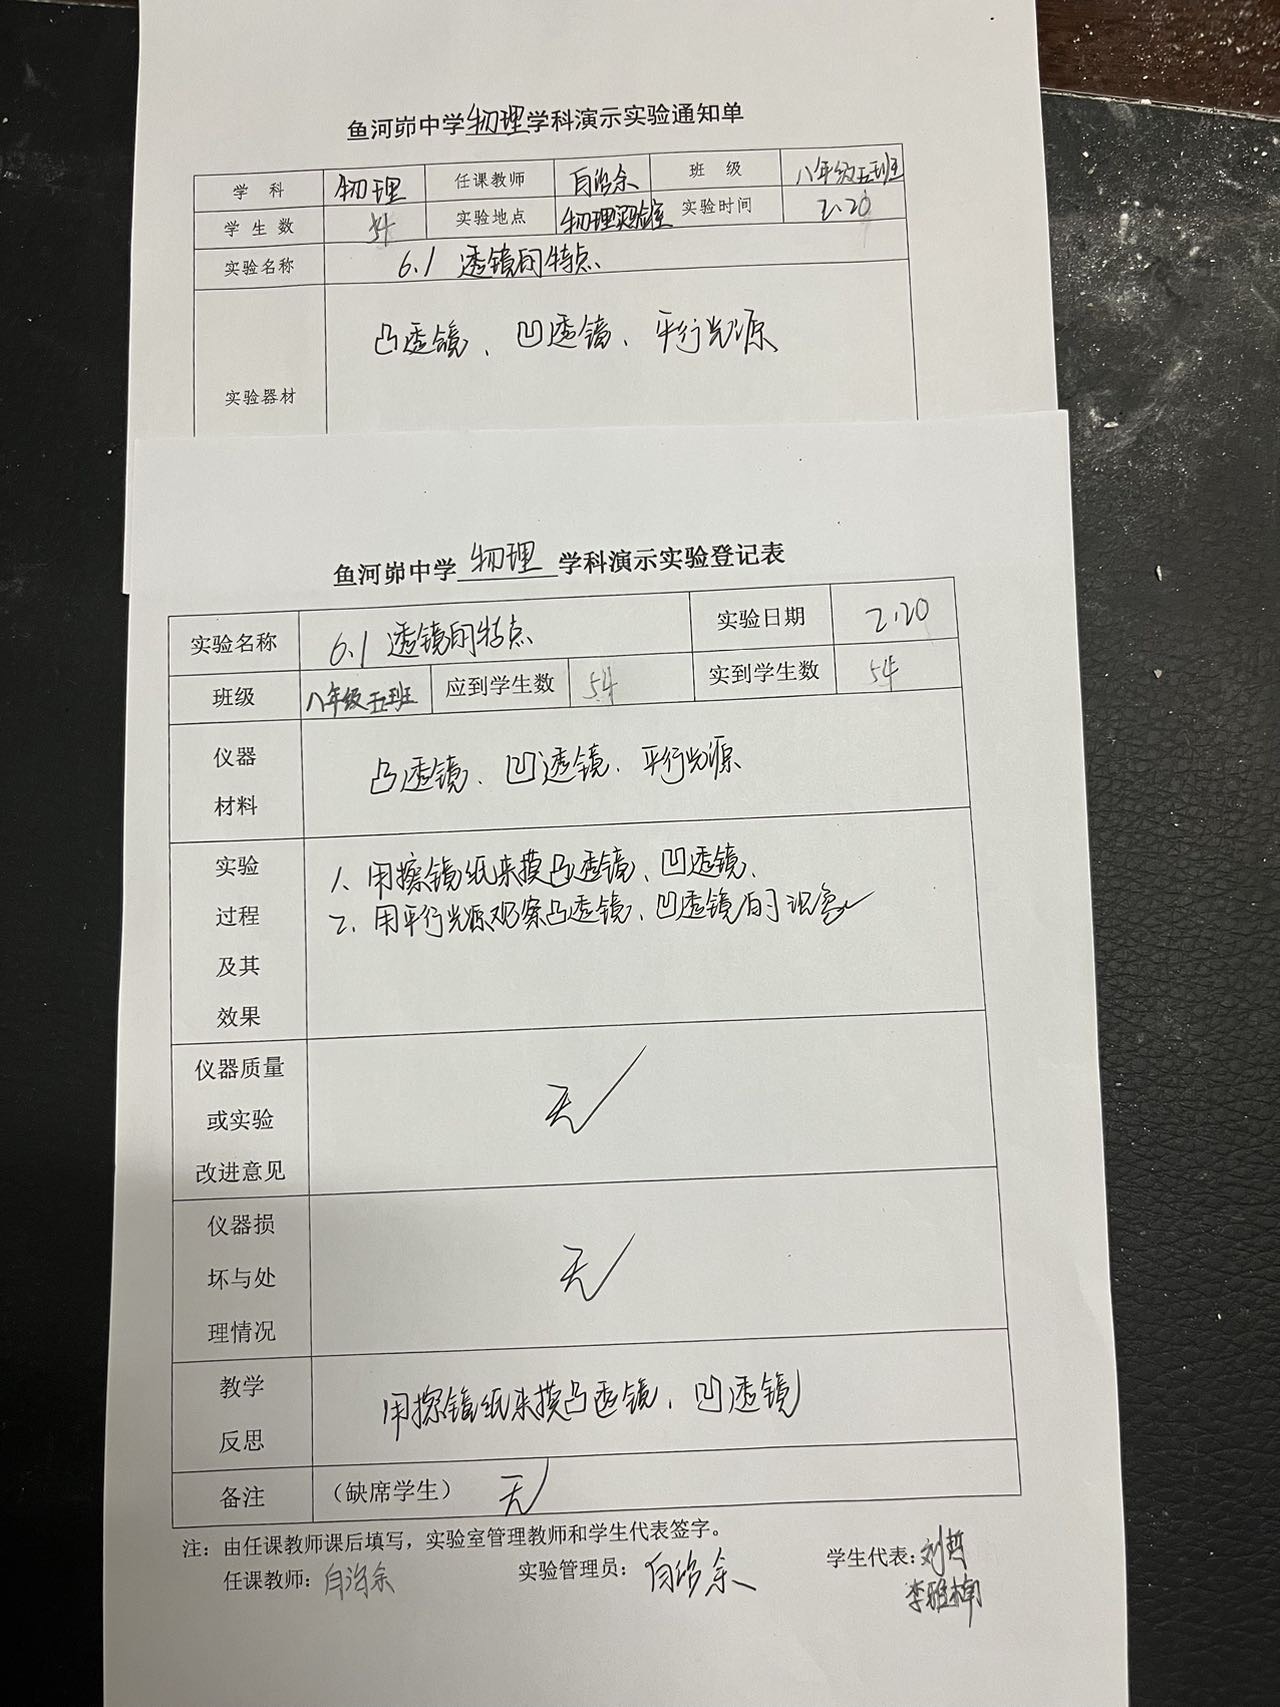 鱼河峁中学物理学科演示实验通知单
学 科 物理 任课教师 班 级 八年级五班
学 生 数 54 实验地点 物理实验室 实验时间 2.20
实验名称 6.1 透镜的特点
凸透镜、凹透镜、平行光源
实验器材
鱼河峁中学 物理 学科演示实验登记表
实验名称 6.1 透镜的特点 实验日期 2.20
班级 八年级五班 应到学生数 54 实到学生数 54
仪器
材料
凸透镜、凹透镜、平行光源
实验
过程
及其
效果
1、用擦镜纸来摸凸透镜、凹透镜、
2、用平行光源观察凸透镜、凹透镜的
仪器质量
或实验
改进意见
无
仪器损
坏与处
理情况
无
教学
反思
用擦镜纸来摸凸透镜、凹透镜
备注 (缺席学生) 无
注：由任课教师课后填写，实验室管理教师和学生代表签字。
任课教师： 实验管理员： 学生代表：刘哲
李雅楠